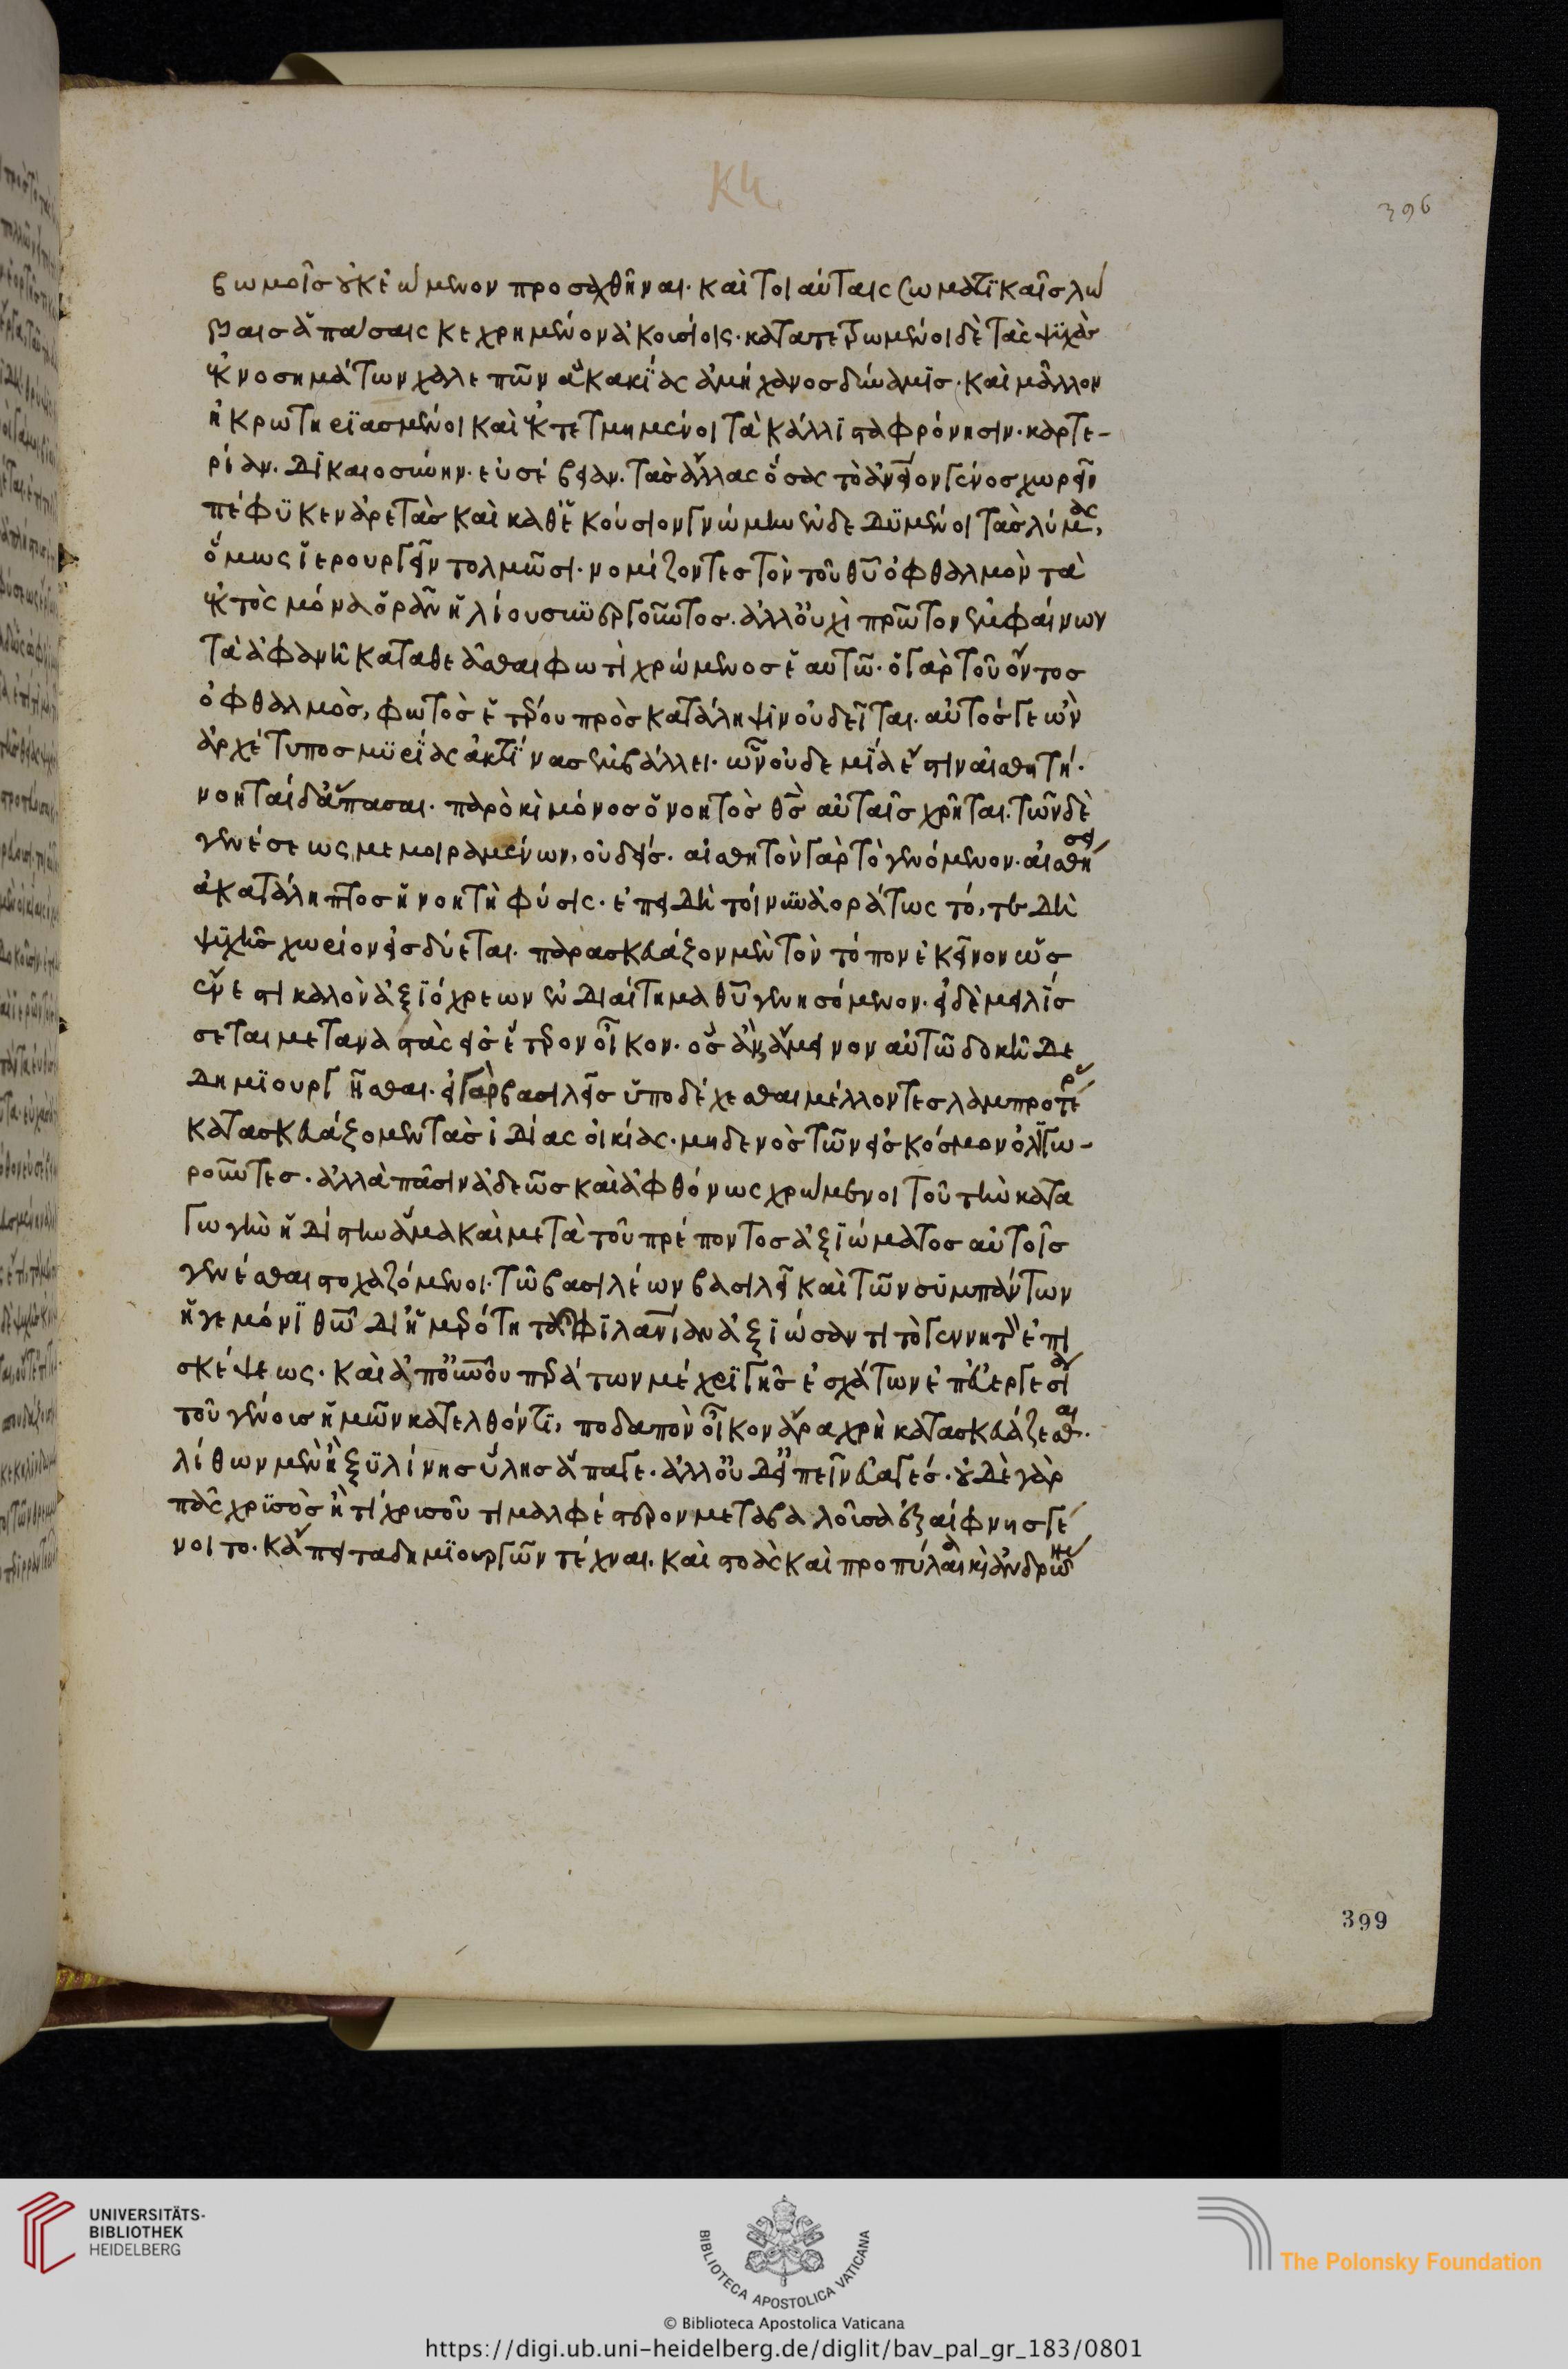 Κη
396
βωμοῖσ οὐκ ἐώμενον προσαχθῆναι. καὶ τοι αὐταις σωματϊκαῖσ λώ
βαισ ἁπάσαις κεχρημένον ἀκουσίοις. κατατετρωμένοι δὲ τὰς ψϋχὰσ
ἐκ νοσημάτων χαλεπῶν ἃ κακΐας ἀμήχανοσ δύναμϊσ. καὶ μᾶλλον
ἠκρωτηριασμένοι καὶ ἐκτετμημένοι τὰ κάλλϊστα φρόνησιν. καρτε-
ρίαν. δϊκαιοσύνην. εὐσέβειαν. τὰσ ἄλλας ὅσας τὸ ἀνειον γένοσ χωρεῖν
πέφϋκεν ἀρετὰσ καὶ καθ' ἑκούσιον γνώμην ἐνδεδϋμένοι τὰσ λύμας,
ὅμως ἱερουργεῖν τολμῶσι. νομίζοντεσ τὸν τοῦ θυ ὀφθαλμὸν τὰ
ἐκτὸς μόνα ὁρᾶν ἡλίου συνεργοῦντοσ. ἀλλ' οὐχὶ πρῶτον ἐμφαίνων
τὰ ἀφανῆ καταθεᾶσθαι φωτὶ χρώμενοσ ἑαυτῶ. ὁ γὰρ τοῦ ὄντοσ
ὀφθαλμὸσ, φωτὸσ ἑτέρου πρὸσ κατάληψϊν οὐ δεῖται. αὐτόσ γε ὢν
ἀρχέτυποσ μϋρΐας ἀκτῖνασ ἐκβάλλει. ὧν οὐδεμΐα ἐστὶν αἰσθητή.
νοηταὶ δ' ἅπασαι. παρὸ κὶ μόνοσ ὁ νοητὸσ θσ αὐταῖσ χρῆται. τῶν δὲ
γενέσεως μεμοιραμένων, οὐδείσ. αἰσθητὸν γὰρ τὸ γενόμενον. αἰσθήσει
ἀκατάληπτοσ ἡ νοητὴ φύσις. ἐπειδὴ τοίνυν ἀοράτως τό, τε δὴ
ψϋχῆσ χωρίον εἰσδύεται. παρασκευάζομεν τὸν τόπον ἐκεῖνον ὡσ
ἔνεστι καλὸν ἀξϊόχρεων ἐνδιαίτημα θυ γενησόμενον. εἰ δὲ μὲ λΐσ
σεται μεταναστὰς εἰσ ἕτερον οἶκον. ὃσ ἂν ἄμεινον αὐτῶ δοκῆ δε
δημϊουργῆσθαι. εἰ γὰρ βασιλεῖσ ὑποδέχεσθαι μέλλοντεσ λαμπροτέρ
κατασκευάζομεν τὰσ ἰδίας οἰκίας. μηδενὸσ τῶν εἰσ κόσμον ὀλϊγω-
ροῦντεσ. ἀλλὰ πᾶσιν ἀδεῶσ καὶ ἀφθόνως χρώμενοι τοῦ τὴν κατα
γωγὴν ἡδίστην ἅμα καὶ μετὰ τοῦ πρέποντοσ ἀξϊώματοσ αὐτοῖσ
γενέσθαι στοχαζόμενοι. τῶ βασιλέων βασιλεῖ καὶ τῶν συμπάντων
ἡγεμόνϊ θῶ δι' ἡμερότητα φϊλανίαν ἀξϊώσαντι τὸ γεννητὸν ἐπι
σκέψεως. καὶ ἀπὸ οὐνοῦ περάτων μέχρϊ γῆσ ἐσχάτων ἐπ' εὐεργεσία
τοῦ γένουσ ἡμῶν κατελθόντϊ, ποδαπὸν οἶκον ἄρα χρὴ κατασκευάζεσθαι.
λίθων μὲν ἢ ξϋλίνησ ὕλησ ἄπαγε. ἀλλ' οὐδ' εἰπεῖν εὐαγέσ. οὐδὲ γὰρ
πᾶς χρϋσὸσ ἤ τι χρυσοῦ τιμαλφέστερον μεταβαλοῦσα ἐξαίφνησ γέ
νοιτο. κἄπειτα δημϊουργῶν τέχναι. καὶ στοὰς καὶ προπύλαια κὶ ἀνδρῶνας
399
UNIVERSITÄTS-
BIBLIOTHEK
HEIDELBERG
BIBLIOTECA APOSTOLICA VATICANA
The Polonsky Foundation
© Biblioteca Apostolica Vaticana
https://digi.ub.uni-heidelberg.de/diglit/bav_pal_gr_183/0801